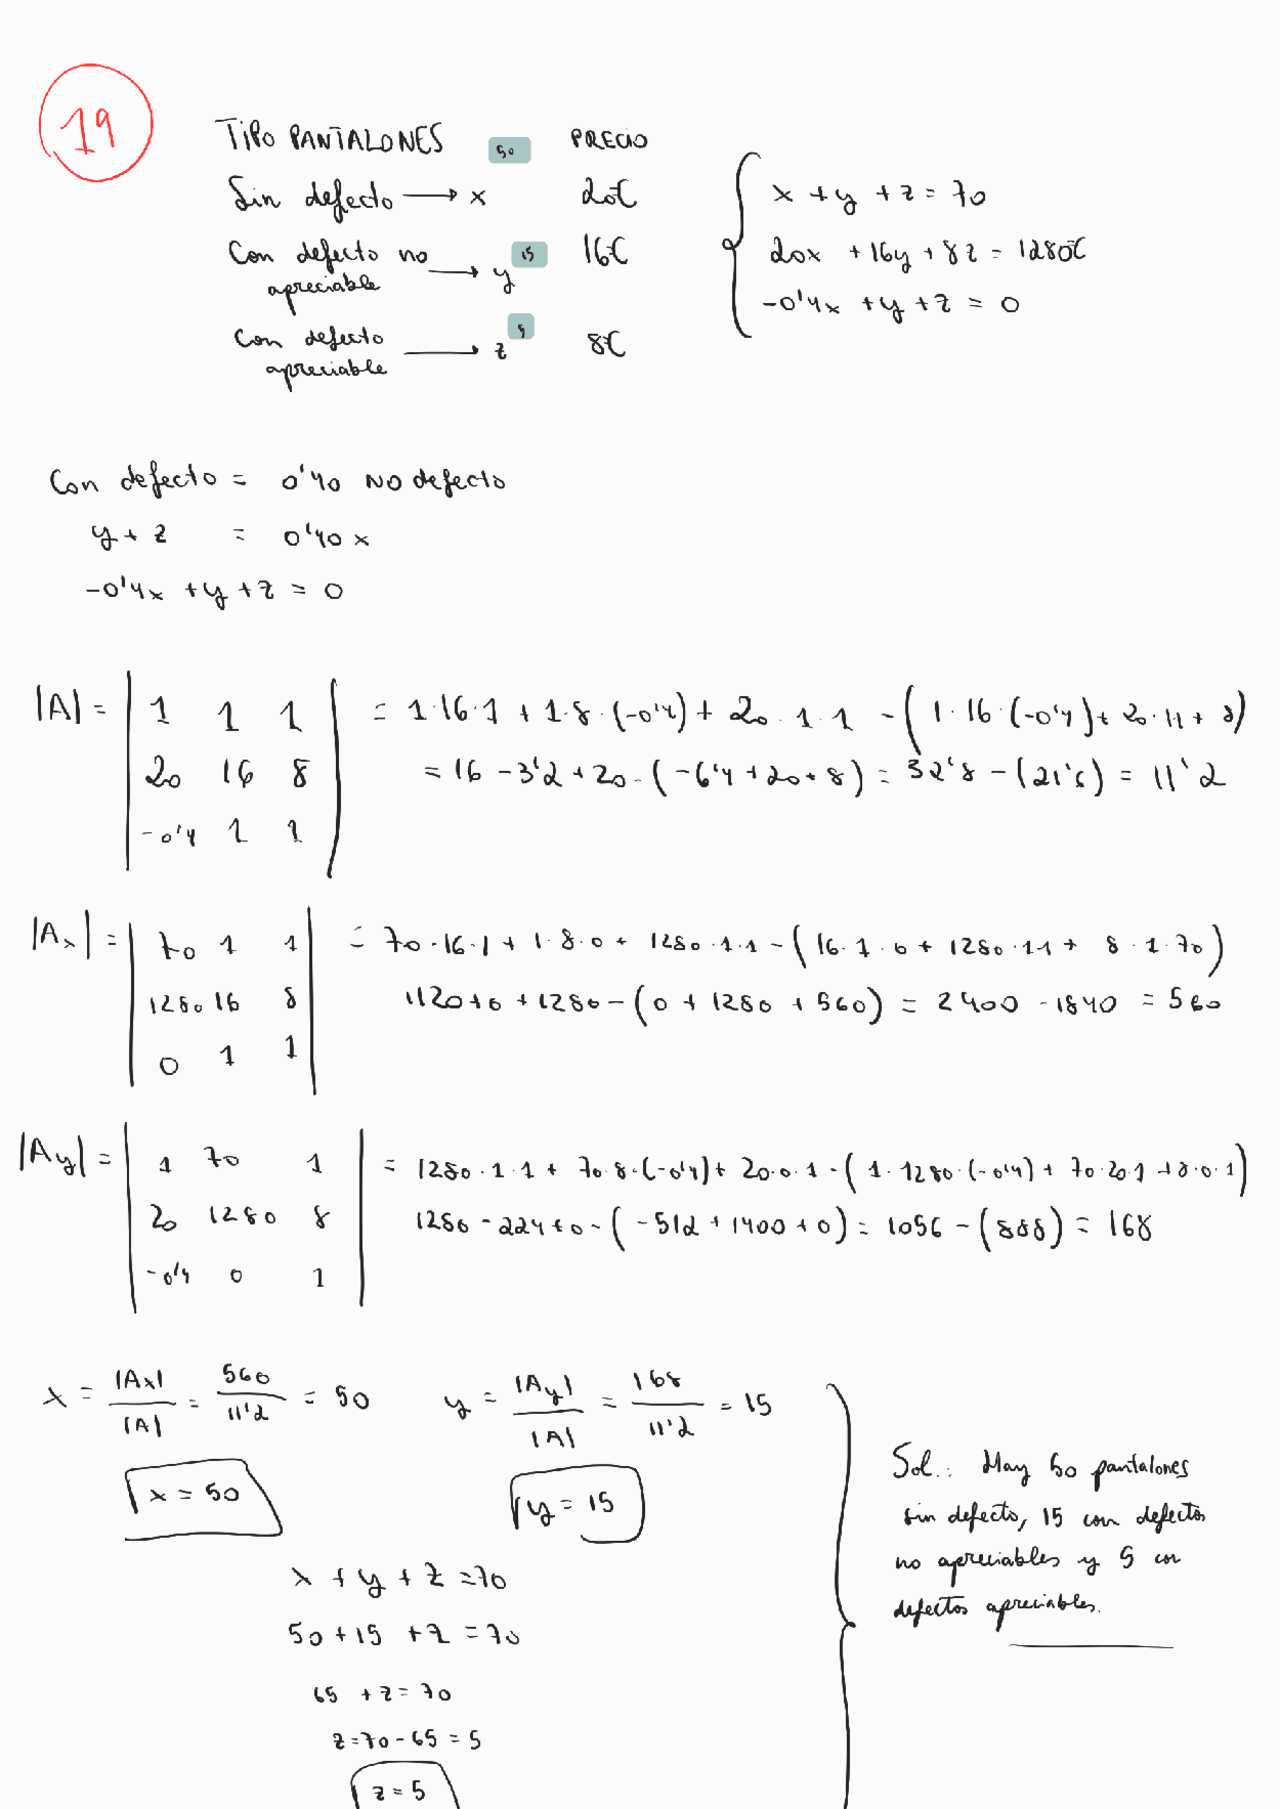 19
TIPO PANTALONES 50 PRECIO
Sin defecto ⟶ x 20€
Con defecto no apreciable ⟶ y 15 16€
Con defecto apreciable ⟶ z 5 8€
x + y + z = 70
20x + 16y + 8z = 1280€
-0'4x + y + z = 0
Con defecto = 0'40 NO defecto
y + z = 0'40 x
-0'4x + y + z = 0
|A| = | 1 1 1 | = 1·16·1 + 1·8·(-0'4) + 20·1·1 - (1·16·(-0'4) + 20·1·1 + 8)
20 16 8 = 16 - 3'2 + 20 - (-6'4 + 20 + 8) = 32'8 - (21'6) = 11'2
-0'4 1 1
|Ax| = | 70 1 1 | = 70·16·1 + 1·8·0 + 1280·1·1 - (16·1·0 + 1280·1·1 + 8·1·70)
1280 16 8 1120 + 0 + 1280 - (0 + 1280 + 560) = 2400 - 1840 = 560
0 1 1
|Ay| = | 1 70 1 | = 1280·1·1 + 70·8·(-0'4) + 20·0·1 - (1·1280·(-0'4) + 70·20·1 + 8·0·1)
20 1280 8 1280 - 224 + 0 - (-512 + 1400 + 0) = 1056 - (888) = 168
-0'4 0 1
x = |Ax| / |A| = 560 / 11'2 = 50 y = |Ay| / |A| = 168 / 11'2 = 15
x = 50 y = 15
x + y + z = 70
50 + 15 + z = 70
65 + z = 70
z = 70 - 65 = 5
z = 5
Sol.: Hay 50 pantalones
sin defecto, 15 con defectos
no apreciables y 5 con
defectos apreciables.